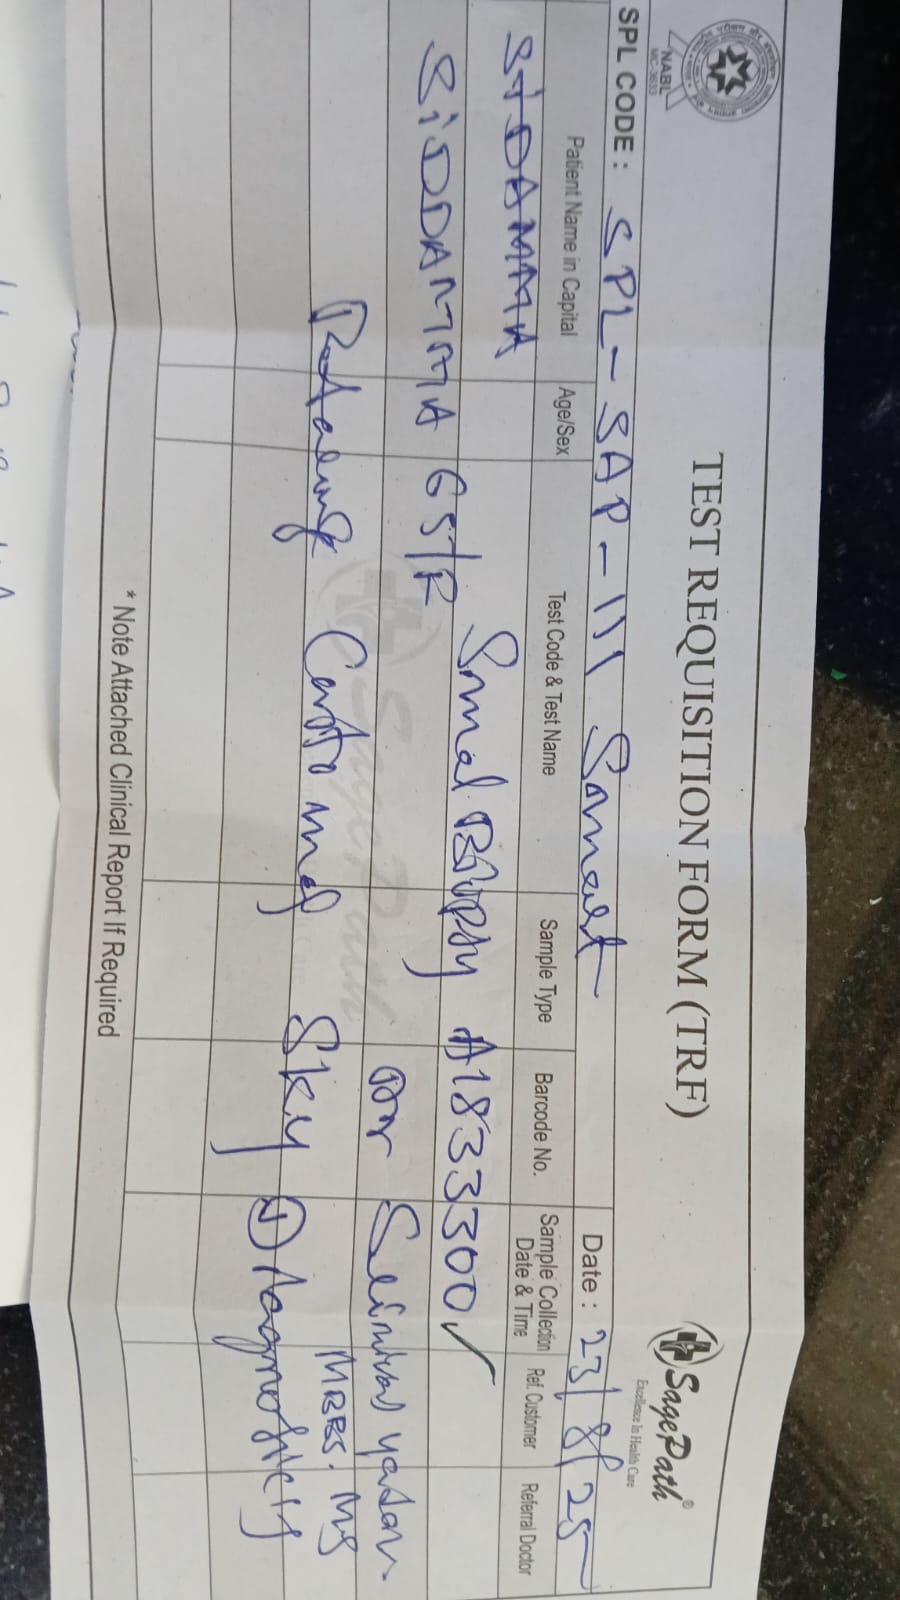 NABL
MC-3633
TEST REQUISITION FORM (TRF)
SagePath®
Excellence In Health Care
SPL CODE : SPL-SAP-111
Date : 23/8/25
Patient Name in Capital Age/Sex Test Code & Test Name Sample Type Barcode No. Sample Collection Date & Time Ref. Customer Referral Doctor
SIDAMMA
Small Biopsy A1833300 ✓
SIDDAMMA 65/F
Dr yadav.
MBBS. MS
Customer Sky Diagnostics
SagePath
* Note Attached Clinical Report If Required